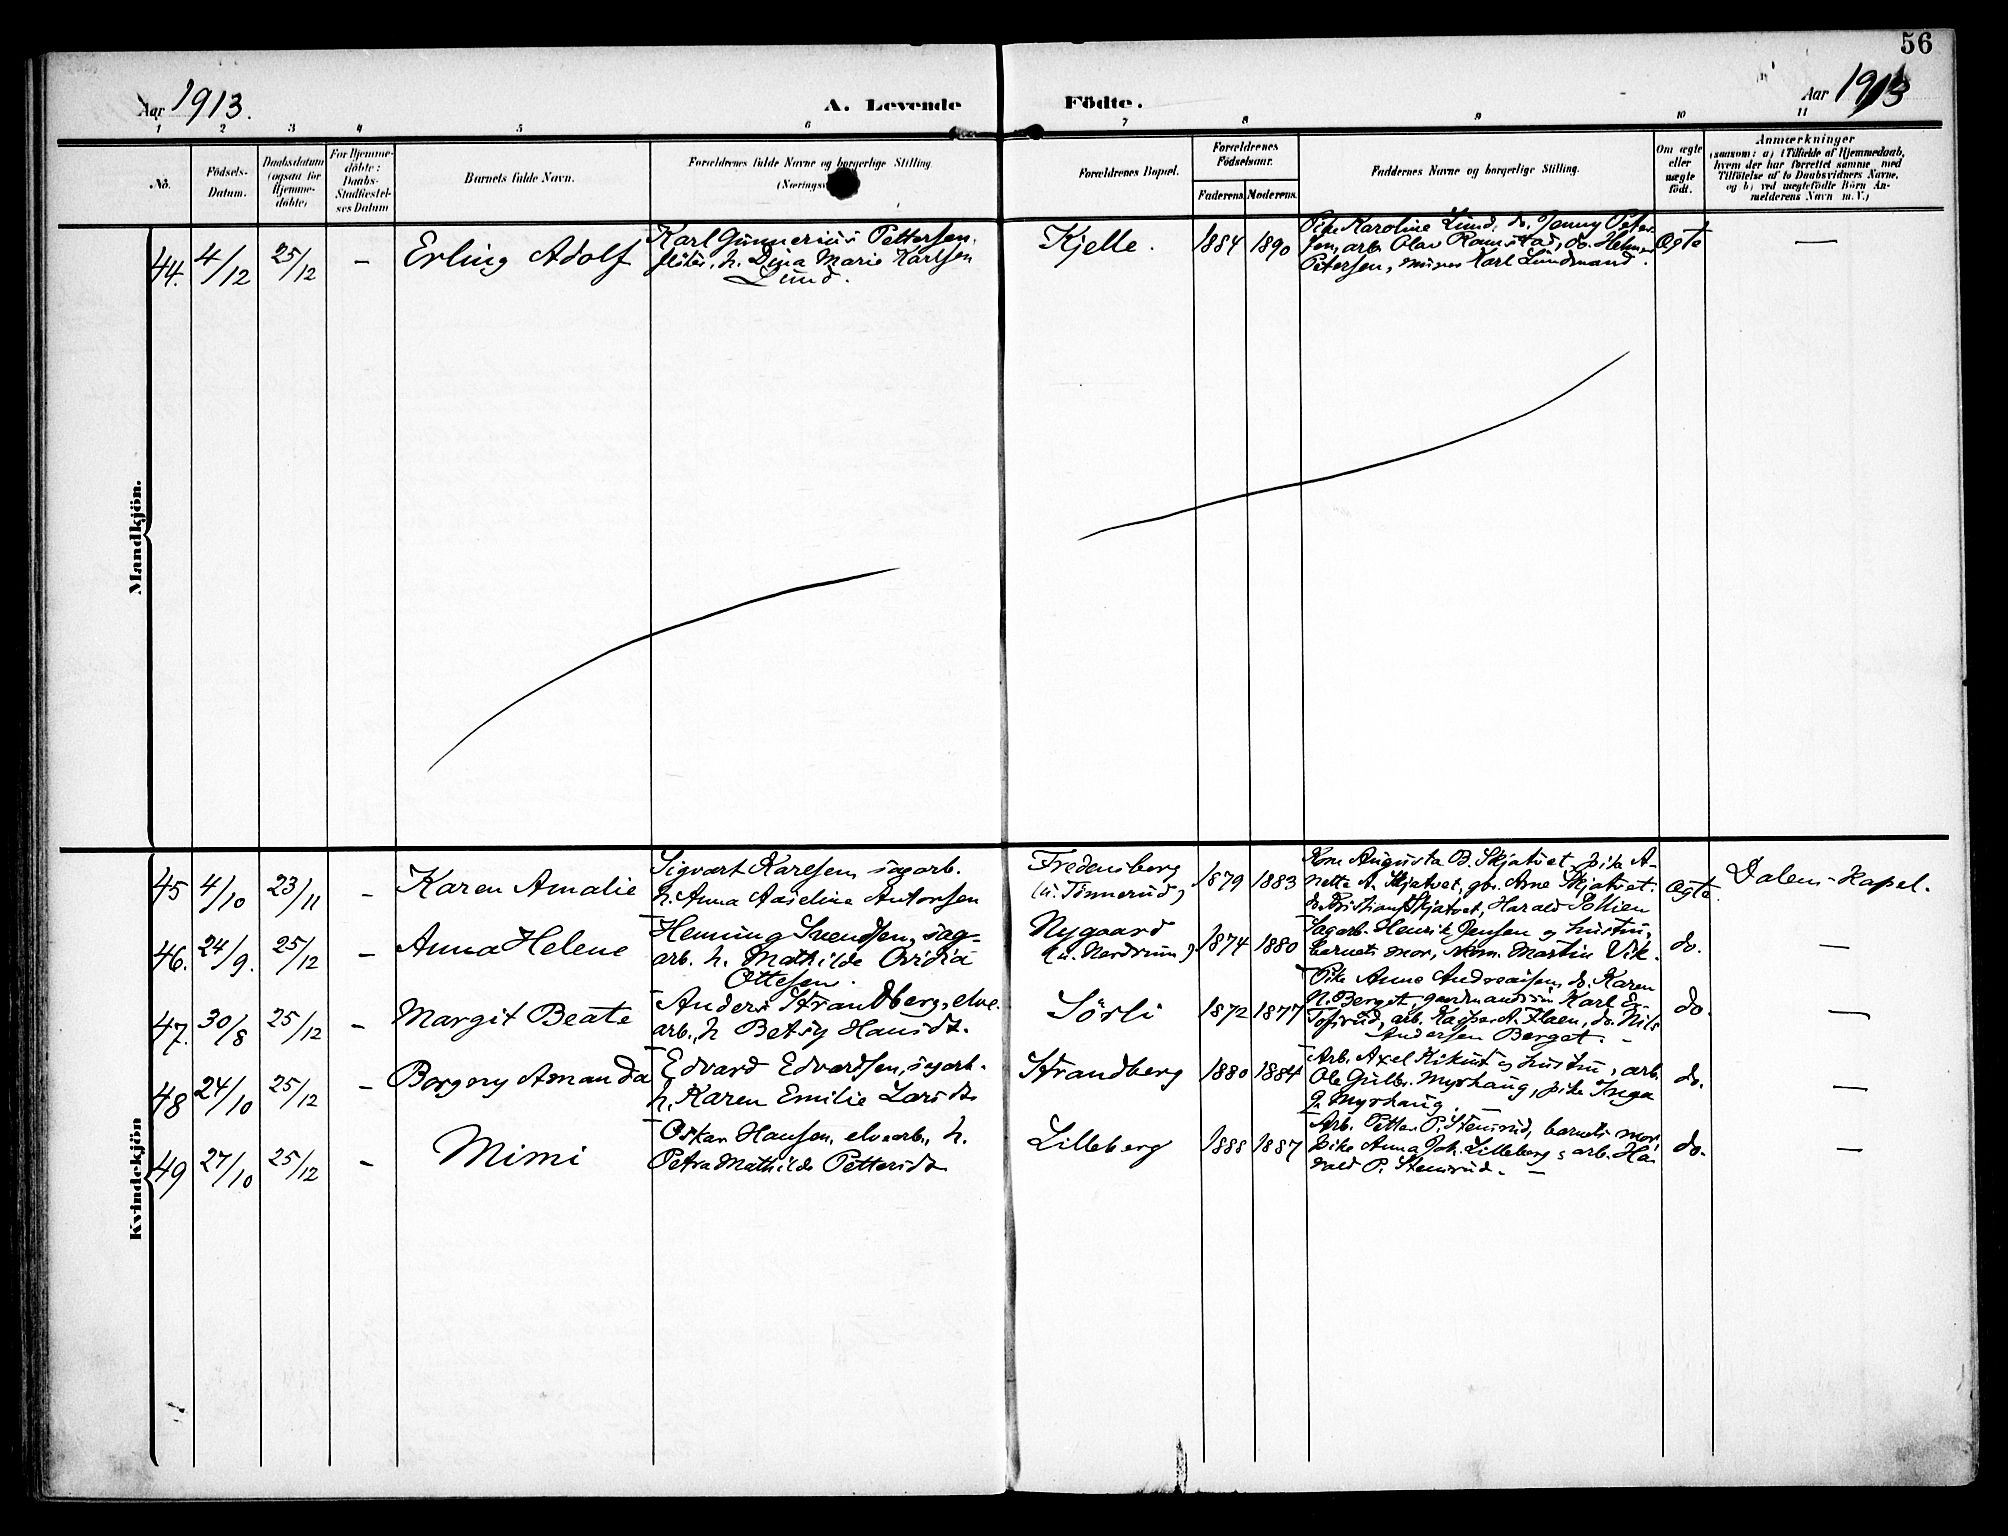 56
Aar 1913.
A. Levende
Födte.
Aar 1913
1 2 3 4 5 6 7 8 9 10 11
No.
Födsels-
Datum.
Daabsdatum
(ogsaa for
Hjemme-
döbte)
For Hjemme-
döbte:
Daabs-
Stadfæstel-
ses Datum
Barnets fulde Navn.
Forældrenes fulde Navne og borgerlige Stilling
Forældrenes Bopæl.
Forældrenes
Födselsaar.
Faderens
Moderens.
Faddernes Navne og borgerlige Stilling.
Om ægte
eller
uægte
födt.
Anmærkninger
(saasom: a) i Tilfælde af Hjemmedaab,
hvem der har forrettet samme, med
Tilföielse af to Daabsvidners Navne,
og b) ved uægtefödte Börn An-
melderens Navn m. V.)
Mandkjön.
44. 4/12 25/12 – Erling Adolf
Karl Gunnerius Pettersen,
fløter, h. Dina Marie Karlsen
Lund.
Kjelle. 1884 1890
Pike Karoline Lund, do. Jenny Peter-
sen, arb. Olav Ramstad, do. Helmer
Petersen, murer Karl Lundmand.
Ægte —
Kvindekjön
45 4/10 23/11 – Karen Amalie
Sigvart Karlsen, sagarb.
h. Anna Aaseline Antonsen
Fredensberg
(u. Tinnerud)
1879 1883
Kone Augusta B. Skjatvet, pike A-
nette A. Skjatvet, gbr. Arne Skjatvet,
do. Kristian Skjatvet, Harald Sollien
Ægte. Dalens-Kapel.
46. 24/9. 25/12 – Anna Helene
Henning Svendsen, sag-
arb. h. Mathilde Ovidia
Ottesen.
Nygaard
(u. Nordrum)
1874 1880
Sagarb. Henrik Jensen og hustru,
barnets mor, Martin Vik.
do. —
47. 30/8 25/12 – Margit Beate
Anders Strandberg, elve-
arb., h Betsy Hansdt.
Sörli 1872 1877
Pike Anne Andreassen, do. Karen
N. Berget, gaardmandssøn Karl
Tofsrud, arb. Kasper A. Flaen, do. Nils
Andersen Berget. –
do. —
48 24/10 25/12 – Borgny Amanda
Edvard Edvardsen, sagarb.
h. Karen Emilie Larsdt.
Strandberg 1880 1884
Arb. Axel Kikut og hustru, arb.
Ole Gulbr. Myrhaug, pike Inga
G. Myrhaug.
do. —
49 27/10 25/12 – Mimi
Oskar Hansen, elvearb., h.
Petra Mathilde Pettersdt
Lilleberg 1888 1887
Arb. Petter P. Stensrud, barnets mor,
pike Anna Joh. Lilleberg, arb. Ha-
rald P. Stensrud. –
do. —